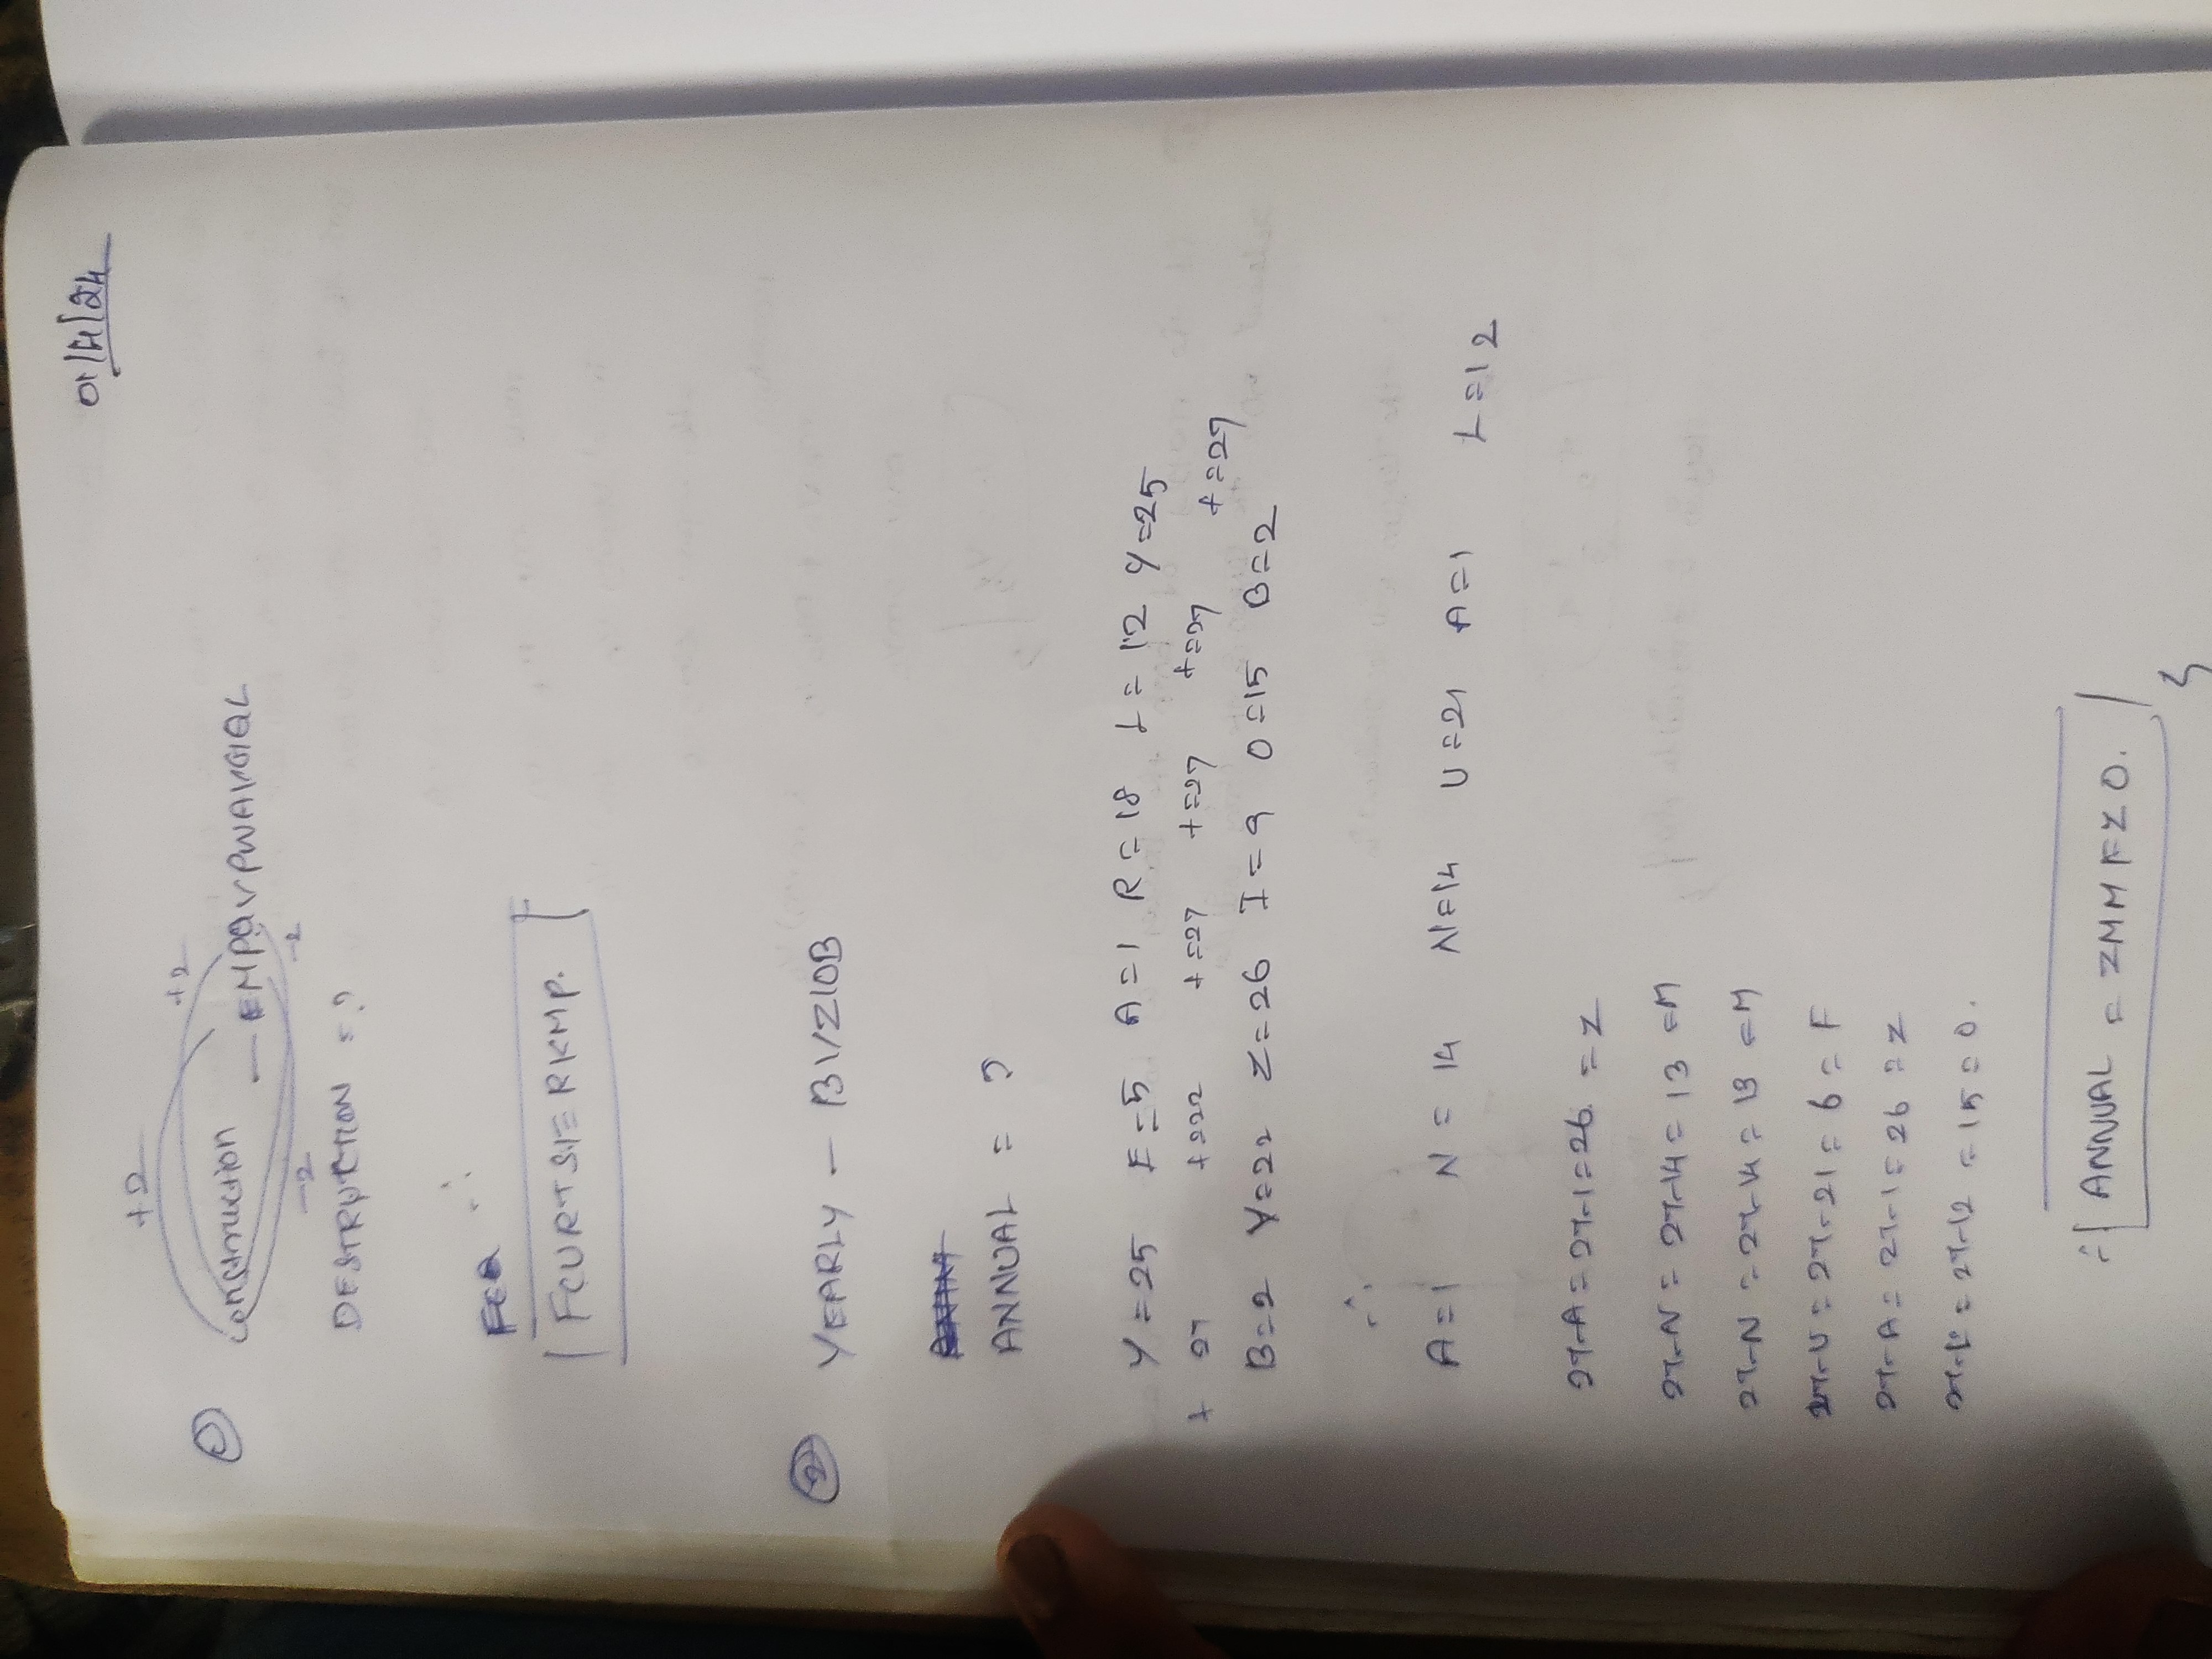 01/4/24
+2 +2
① Construction — EMPQVPWAKGQL
-2 -2
DESTRUCTION = ?
∴
FCURTSIERKMP.
② YEARLY — BVZIOB
ANNUAL = ?
Y=25 E=5 A=1 R=18 L=12 Y=25
+ 27 +=22 +=27 +=27 +=27 +=27
B=2 V=22 Z=26 I=9 O=15 B=2
∴
A=1 N=14 N=14 U=21 A=1 L=12
27-A=27-1=26 =Z
27-N= 27-14= 13 =M
27-N =27-14= 13 =M
27-U = 27-21= 6 = F
27-A= 27-1=26 =Z
27-L= 27-12 =15=O.
∴ ANNUAL = ZMMFZO.